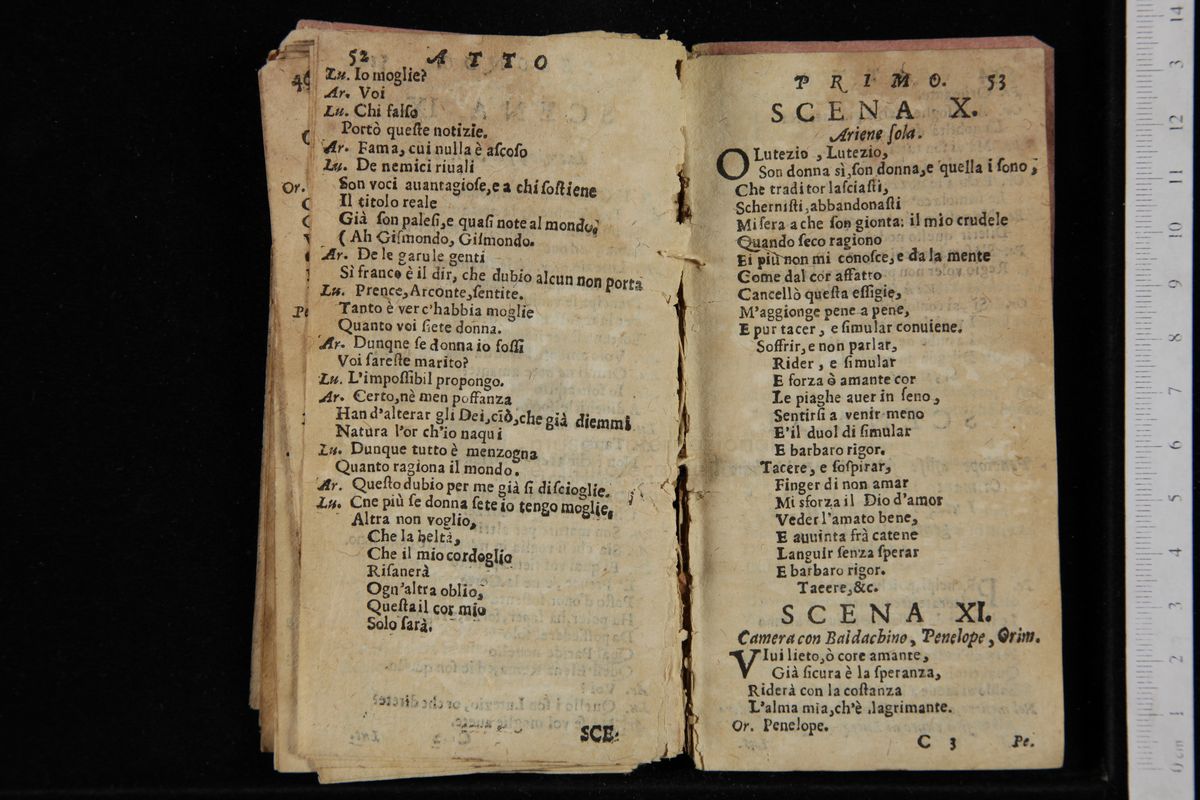 52 ATTO
Lu. Io moglie?
Ar. Voi
Lu. Chi falſo
Portò queſte notizie.
Ar. Fama, cui nulla è aſcoſo
Lu. De nemici riuali
Son voci auantagioſe, e a chi ſoſtiene
Il titolo reale
Già ſon paleſi, e quaſi note al mondo.
( Ah Giſmondo, Giſmondo.
Ar. De le garule genti
Sì franco è il dir, che dubio alcun non porta
Lu. Prence, Arconte, ſentite.
Tanto è ver c'habbia moglie
Quanto voi ſiete donna.
Ar. Dunqne ſe donna io foſſi
Voi ſareſte marito?
Lu. L'impoſſibil propongo.
Ar. Certo, nè men poſſanza
Han d'alterar gli Dei, ciò, che già diemmi
Natura l'or ch'io naqui
Lu. Dunque tutto è menzogna
Quanto ragiona il mondo.
Ar. Queſto dubio per me già ſi diſcioglie.
Lu. Cne più ſe donna ſete io tengo moglie,
Altra non voglio,
Che la beltà,
Che il mio cordoglio
Riſanerà
Ogn'altra oblio,
Queſta il cor mio
Solo ſarà.
SCE-
Or.
Pe
PRIMO. 53
SCENA X.
Ariene ſola.
O Lutezio, Lutezio,
Son donna sì, ſon donna, e quella i ſono,
Che traditor laſciaſti,
Scherniſti, abbandonaſti
Miſera a che ſon gionta: il mio crudele
Quando ſeco ragiono
Ei più non mi conoſce, e da la mente
Come dal cor affatto
Cancellò queſta effigie,
M'aggionge pene a pene,
E pur tacer, e ſimular conuiene.
Soffrir, e non parlar,
Rider, e ſimular
E forza ò amante cor
Le piaghe auer in ſeno,
Sentirſi a venir meno
E'il duol di ſimular
E barbaro rigor.
Tacere, e ſoſpirar,
Finger di non amar
Mi sforza il Dio d'amor
Veder l'amato bene,
E auuinta frà catene
Languir ſenza ſperar
E barbaro rigor.
Tacere, &c.
SCENA XI.
Camera con Baldachino, Penelope, Orim.
VIui lieto, ò core amante,
Già ſicura è la ſperanza,
Riderà con la coſtanza
L'alma mia, ch'è lagrimante.
Or. Penelope.
C 3 Pe.
0 cm 1 2 3 4 5 6 7 8 9 10 11 12 3 14